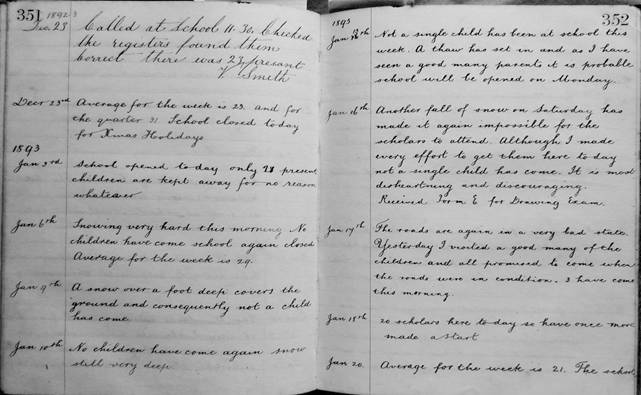 351
1892
Dec. 23
Called at School 11.30. Checked
the registers found them
correct there was 23 present
V Smith
Decr 23rd Average for the week is 23. and for
the quarter 31 School closed today
for Xmas Holidays
1893
Jan 3rd School opened to day only 21 present
children are kept away for no reason
whatever
Jan 6th Snowing very hard this morning No
children have come school again closed
Average for the week is 29.
Jan 9th A snow over a foot deep covers the
ground and consequently not a child
has come
Jan 10th No children have come again snow
still very deep
352
1893
Jan Not a single child has been at school this
week. A thaw has set in and as I have
seen a good many parents it is probable
school will be opened on Monday.
Jan 16th Another fall of snow on Saturday has
made it again impossible for the
scholars to attend. Although I made
every effort to get them here to day
not a single child has come. It is most
disheartning and discouraging.
Received Form E for Drawing Exam.
Jan 17th The roads are again in a very bad state.
Yesterday I visited a good many of the
children and all promised to come when
the roads were in condition. 3 have come
this morning.
Jan 18th 20 scholars here to day so have once more
made a start
Jan 20. Average for the week is 21. The school